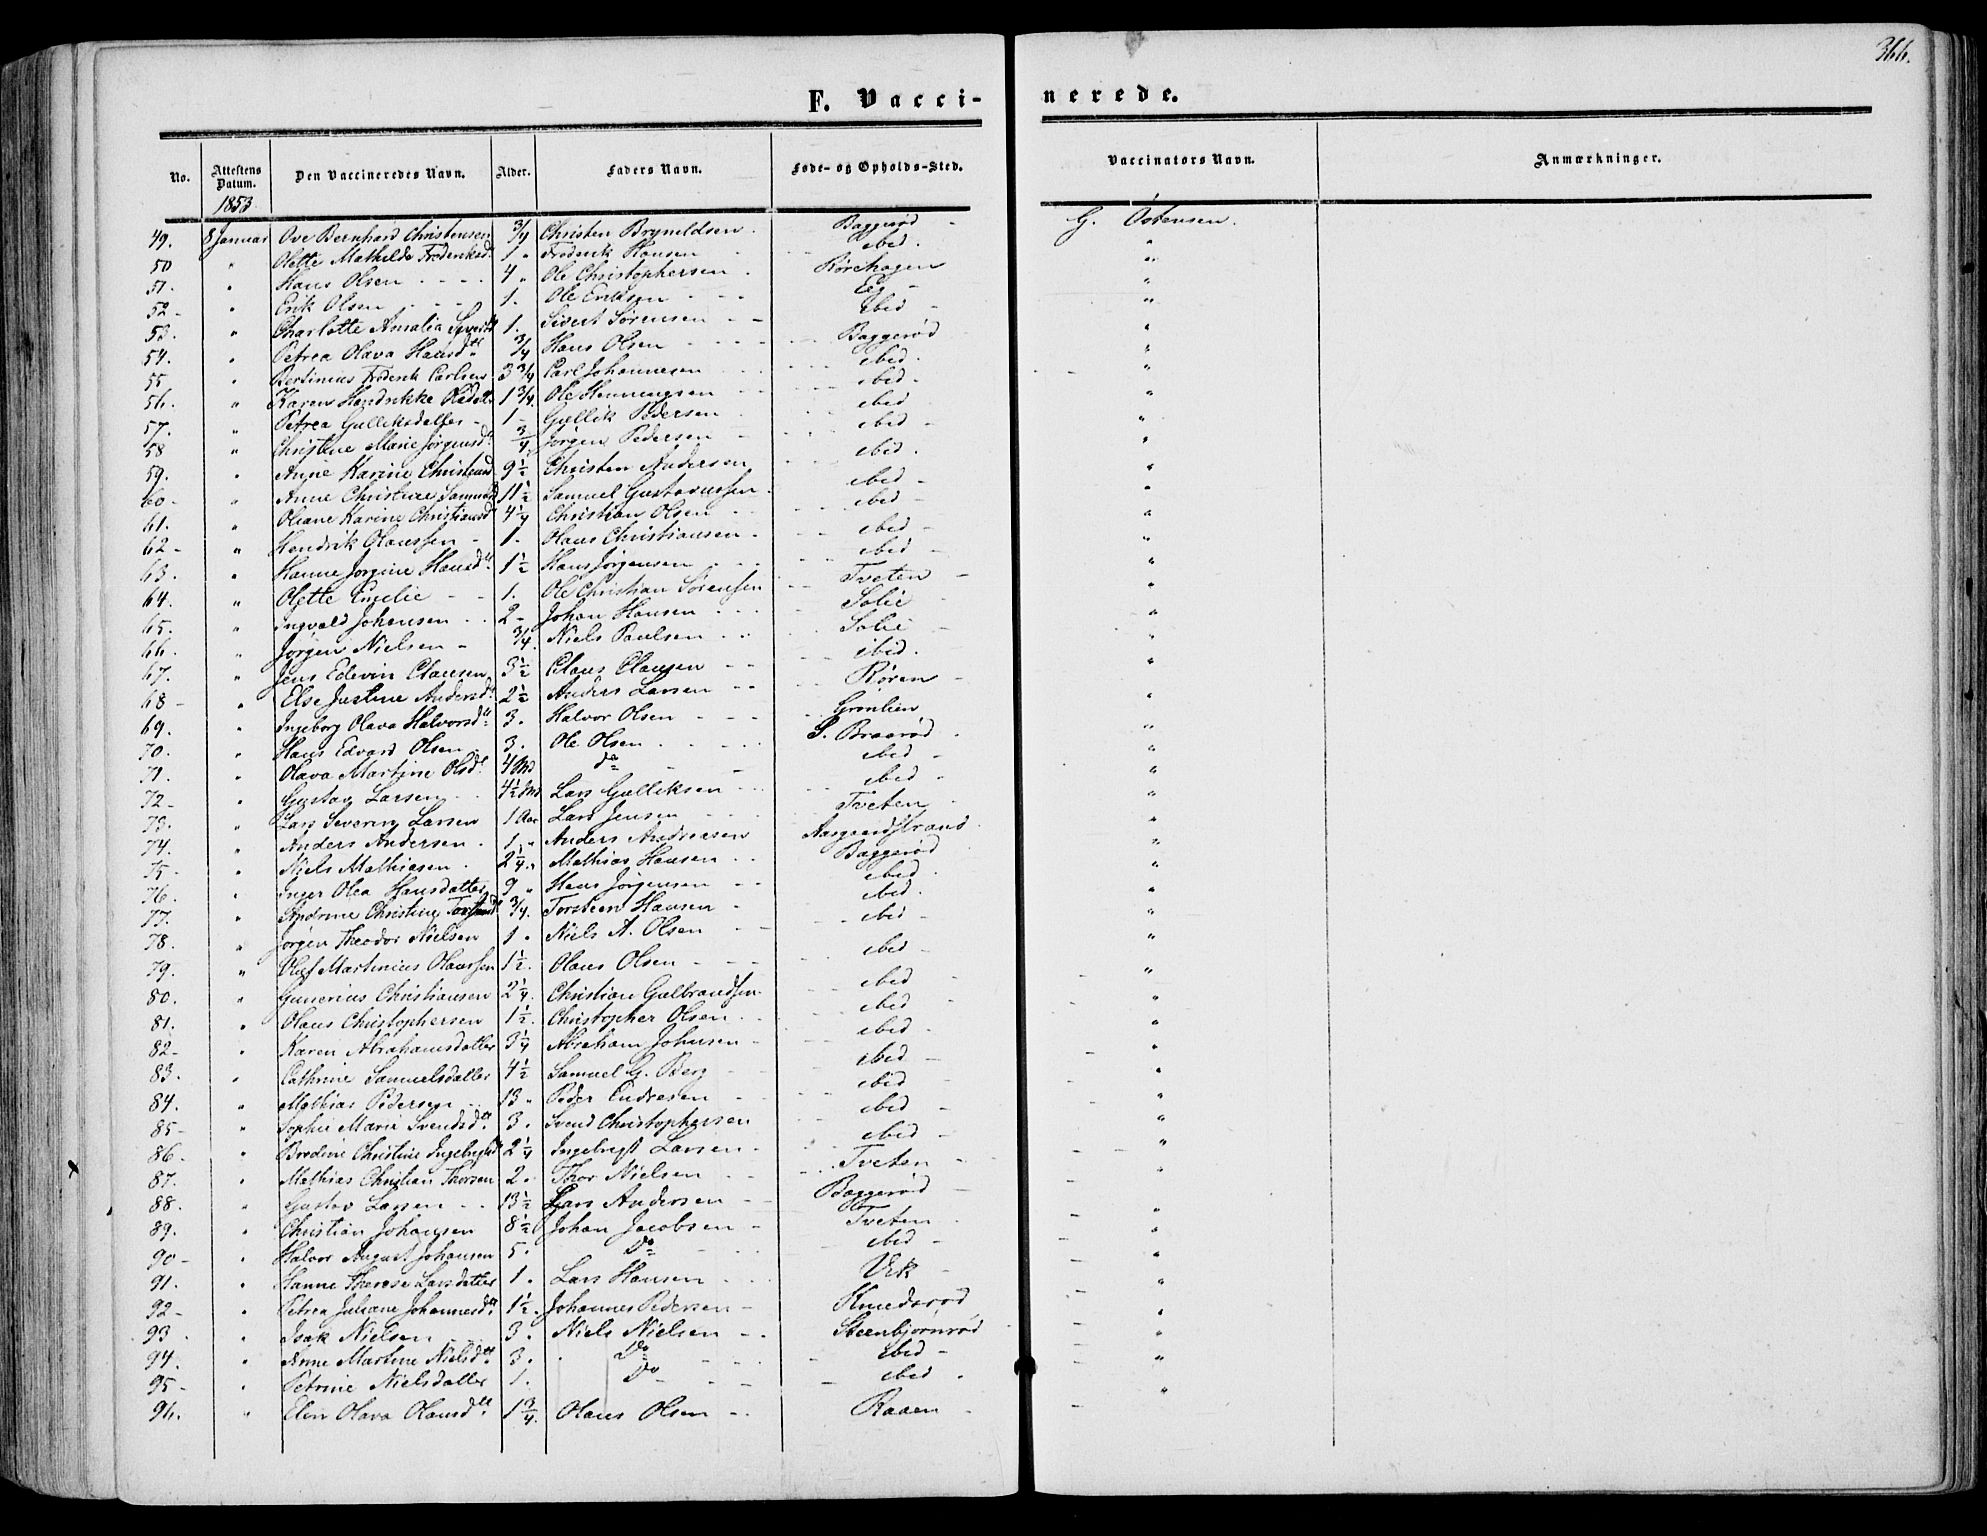 366.
F. Vaccinerede.
No. | Attestens Datum. | Den Vaccineredes Navn. | Alder. | Faders Navn. | Føde- og Opholds-Sted. | Vaccinators Navn. | Anmærkninger.
1853
49. 8 Januar Ove Bernhard Christensen 3/4 Christen Bryneldsen. Baggerød - G. Östensen.
50 " Olette Mathilde Frederiksd. 1 " Frederik Hansen ibid. "
51. " Hans Olsen 4 " Ole Christophersen Rørehagen "
52- " Erik Olsen 1. Ole Eriksen Eeg - "
53. " Charlotte Amalia Sivertsd 1. Sivert Sörensen ibid "
54. " Petrea Olava Hansdtr 3/4 Hans Olsen Baggerød "
55 " Bertinius Frederik Carlsen 3 3/4 Carl Johannesen ibid. "
56. " Karen Hendrikke Olsdatter 1 3/4. Ole Henningsen ibid. "
57. " Petrea Gulliksdatter - 1 - Gullik Pedersen ibid "
58 " Christine Marie Jörgensd. 3/4 Jörgen Pedersen ibid - "
59. " Anne Karine Christensd 9 1/2 Christen Andersen ibid. "
60- " Anne Christine Samuelsd 11 1/2 Samuel Gustavussen. ibid - "
61. " Oliane Karine Christiansd 4 1/4 Christian Olsen ibid - "
62- " Hendrik Olaussen - 1. Olaus Christiansen - ibid - "
63. " Hanne Jorgine Hansdtr 1 1/2 Hans Jörgensen ibid - "
64. " Olette Emilie 1. Ole Christian Sörensen Tveten - "
65. " Ingvald Johansen 2 - Johan Hansen Solie "
66. " Jörgen Nielsen - 3/4. Niels Paulsen Solie - "
67. " Jens Edevin Clausen 3 1/2 Claus Clausen ibid. "
68- " Else Justine Andersd. 2 1/2 Anders Larsen Rören - "
69. " Ingeborg Olava Halvorsdtr 3. Halvor Olsen Grønlien "
70. " Hans Edvard Olsen 3. Ole Olsen S. Braarød "
71. " Olava Martine Olsdtr 4 Md do ibid - "
72- " Gustav Larsen 4 1/2 Md Lars Gulliksen ibid - "
73. " Lars Severin Larsen 1 Aar Lars Jensen Tveten "
74. " Anders Andersen . 1. " Anders Andreasen Aasgaardstrand. "
75- " Niels Mathiesen . 2 1/4 " Mathias Hansen Baggerød "
76. " Inger Olea Hansdatter 9 " Hans Jörgensen ibid. "
77. " Andrine Christine Torstensd 3/4. Torsteen Hansen - ibid. "
78. " Jörgen Theodor Nielsen 1 . Niels A. Olsen ibid - "
79. " Oluf Martinius Olaussen 1 1/2. Olaus Olsen ibid - "
80. " Gunerius Christiansen 2 1/4. Christian Gulbrandsen. ibid - "
81. " Olaus Christophersen 1 1/2. Christopher Olsen ibid - "
82- " Karen Abrahamsdatter 3 1/4 Abraham Johnsen - ibid - "
83. " Cathrine Samuelsdatter 4 1/2 Samuel G. Berg ibid - "
84. " Mathias Pedersen 13 " Peder Endresen ibid - "
85- " Sophie Marie Svendsdtr 3 . Svend Christophersen ibid - "
86. " Bredine Christine Ingebrigtsd 2 1/4 Ingebrigt Larsen . ibid - "
87. " Mathias Christian Thorsen 2 . Thor Nielsen Tveten - "
88. " Gustav Larsen 13 1/2 Lars Andersen Baggerød - "
89. " Christian Johansen 8 1/2 Johan Jacobsen - Tveten . "
90- " Halvor August Johansen 5. Do ibid - "
91. " Hanne Therese Larsdatter 1. Lars Hansen Vik - "
92- " Petrea Juliane Johannesdtr 1 1/2. Johannes Pedersen - Knudsrød "
93 " Isak Nielsen 3. Niels Nielsen Steenbjörnrød "
94. " Anne Martine Nielsdtr 3. Do ibid - "
95- " Petrine Nielsdatter 1. Do ibid . "
96. " Elen Olava Olausdtr 1 3/4. Olaus Olsen Raaen - "